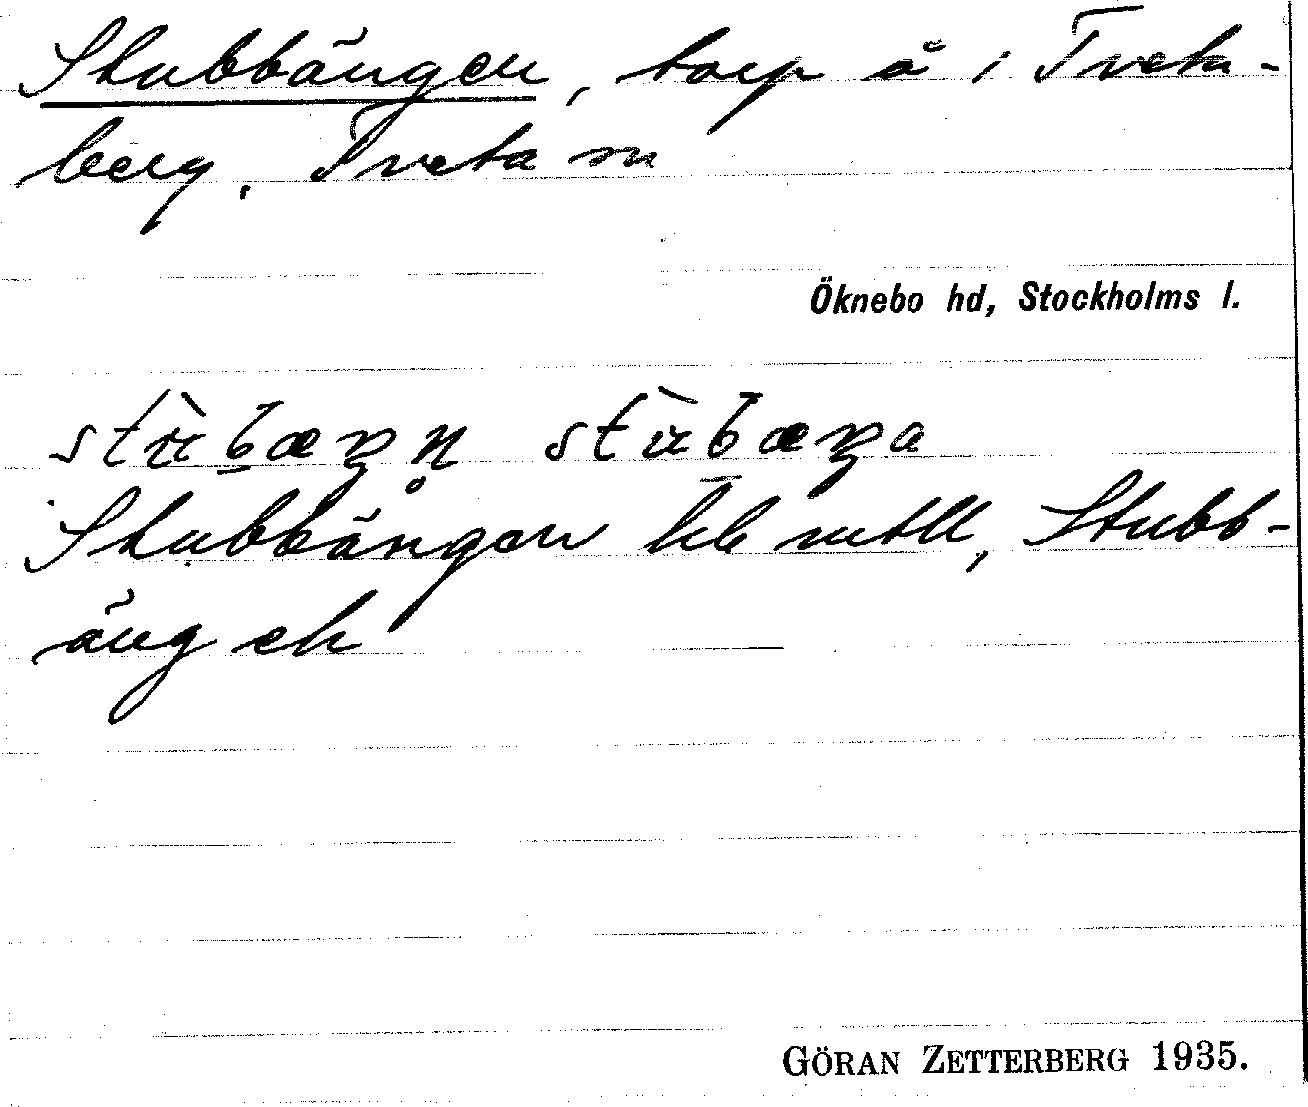 Stubbängen, torp å i Tveta-
berg, Tveta sn
Öknebo hd, Stockholms l.
stùbæŋn stùbæŋa
Stubbängen hb mtll, Stubb-
äng ek
GÖRAN ZETTERBERG 1935.